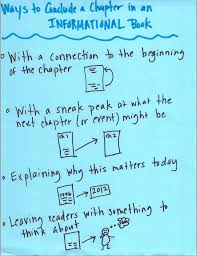 Ways to Conclude a Chapter in an
INFORMATIONAL Book
With a connection to the beginning
of the chapter
With a sneak peak at what the
next chapter (or event) might be
Ch 1
Ch 2
Explaining why this matters today
2012
Leaving readers with something to
think about